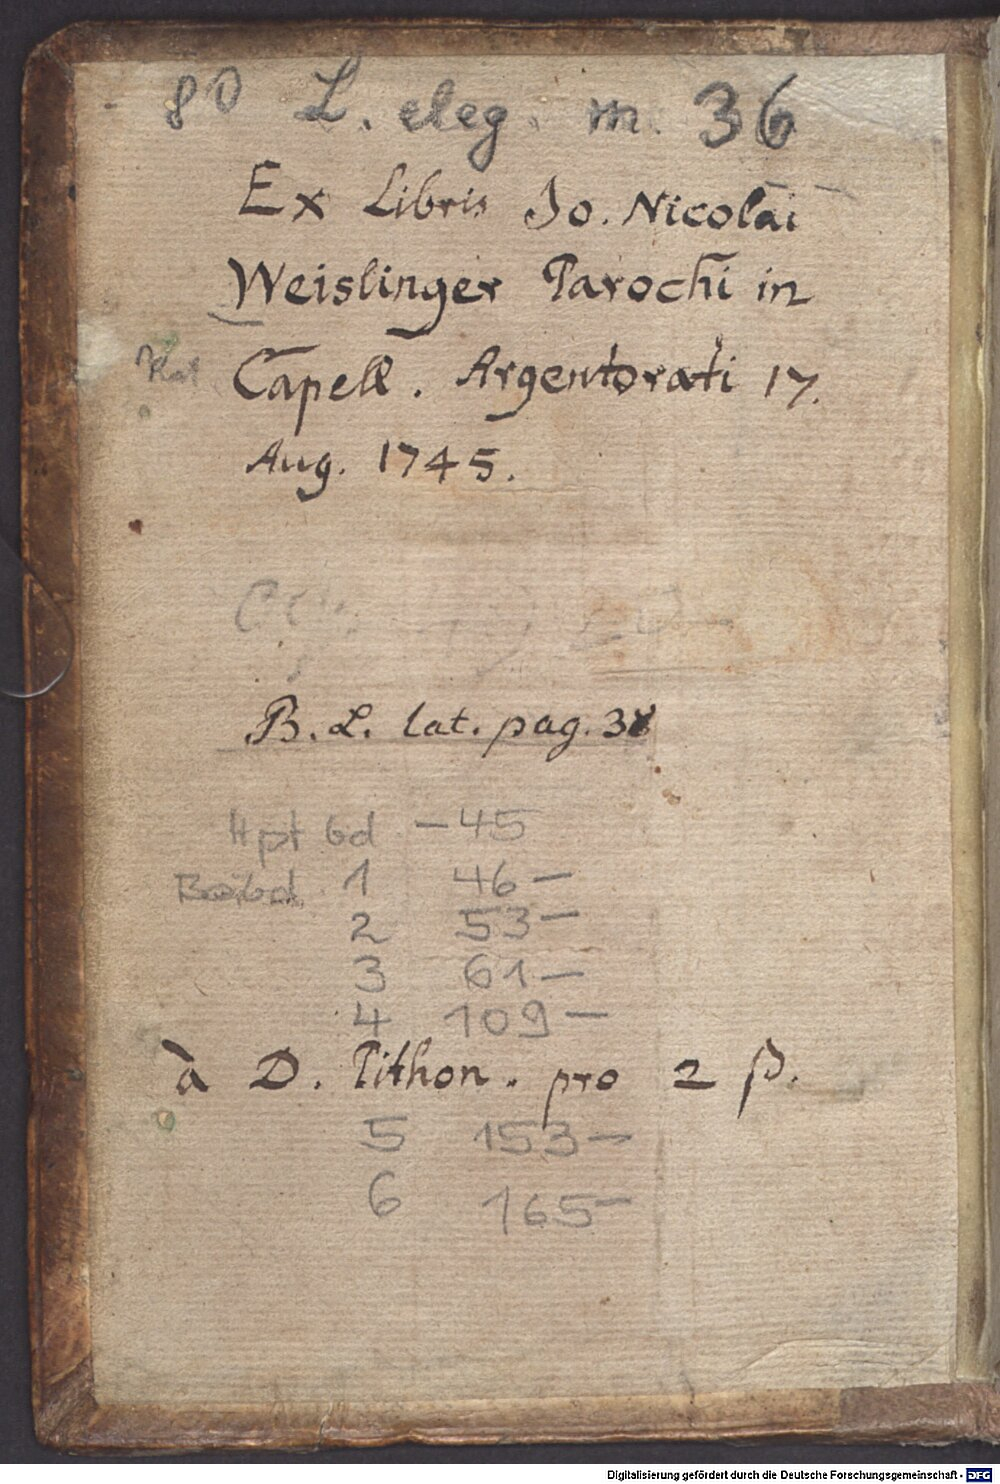 80 L. eleg. m. 36
Ex Libris Jo. Nicolai
Weislinger Parochi in
Capell. Argentorati 17.
Aug. 1745.
B. L. lat. pag. 38
Hptbd - 45
Beibd. 1 46 -
2 53 -
3 61 -
4 109 -
à D. Pithon. pro 2 ß.
5 153 -
6 165 -
Digitalisierung gefördert durch die Deutsche Forschungsgemeinschaft - DFG